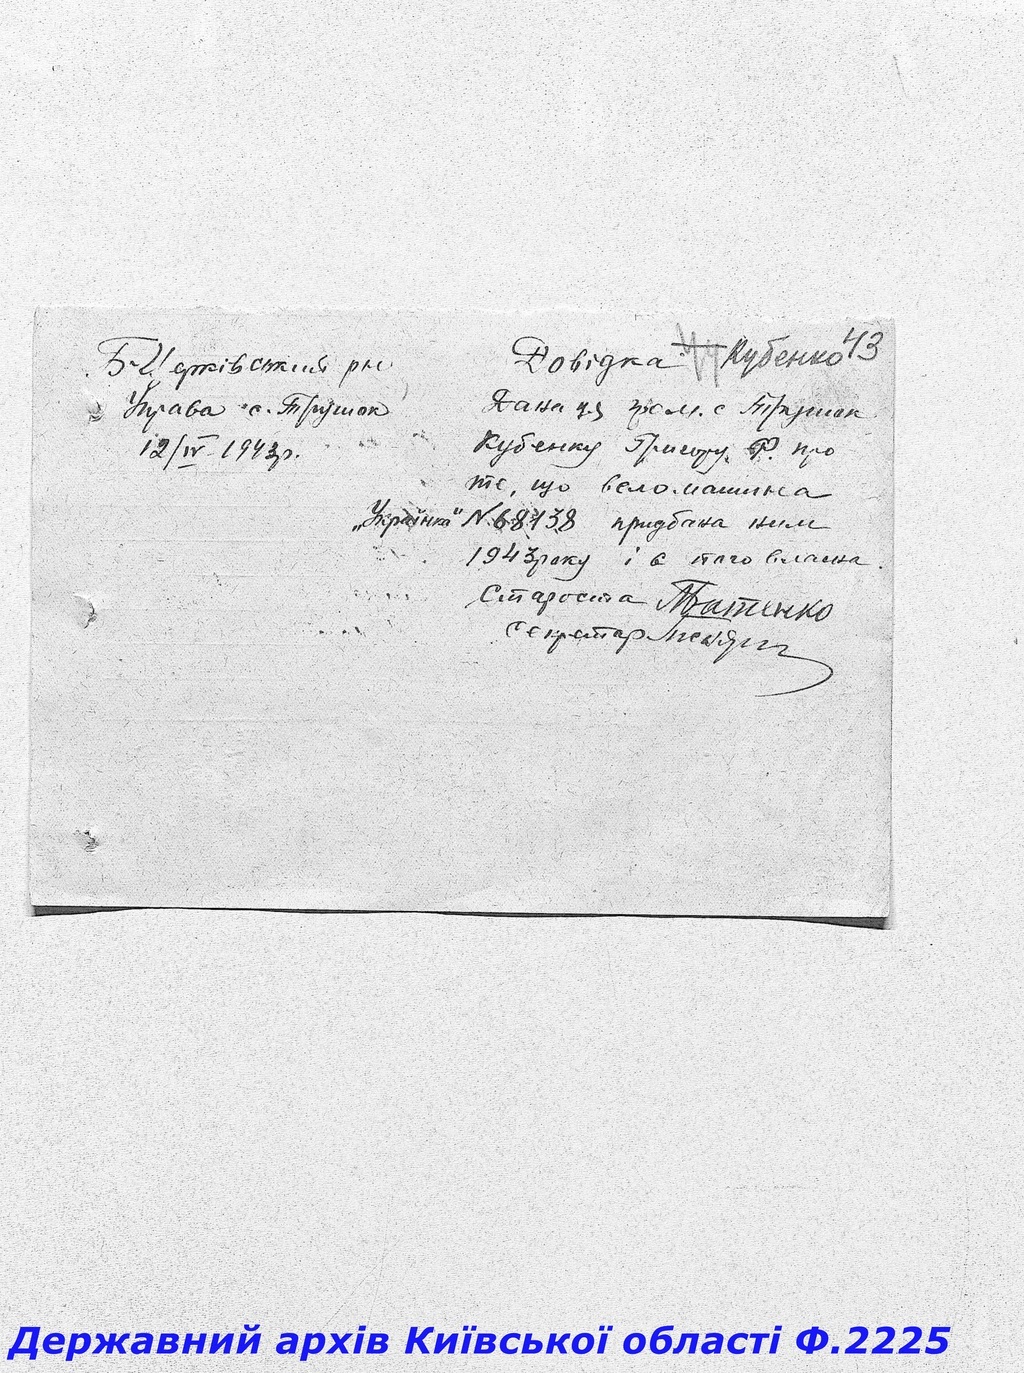 Б-Церківський р-н
Управа с. Трушок
12/IV 1943р.
Довідка
Кубенко 43
Дана ця гром. с Трушок
Кубенку Григору Ф. про
те, що веломашина
„Українка" N 68738 придбана ним
1943року і є його власна.
Староста
Секретар
Державний архів Київської області Ф.2225